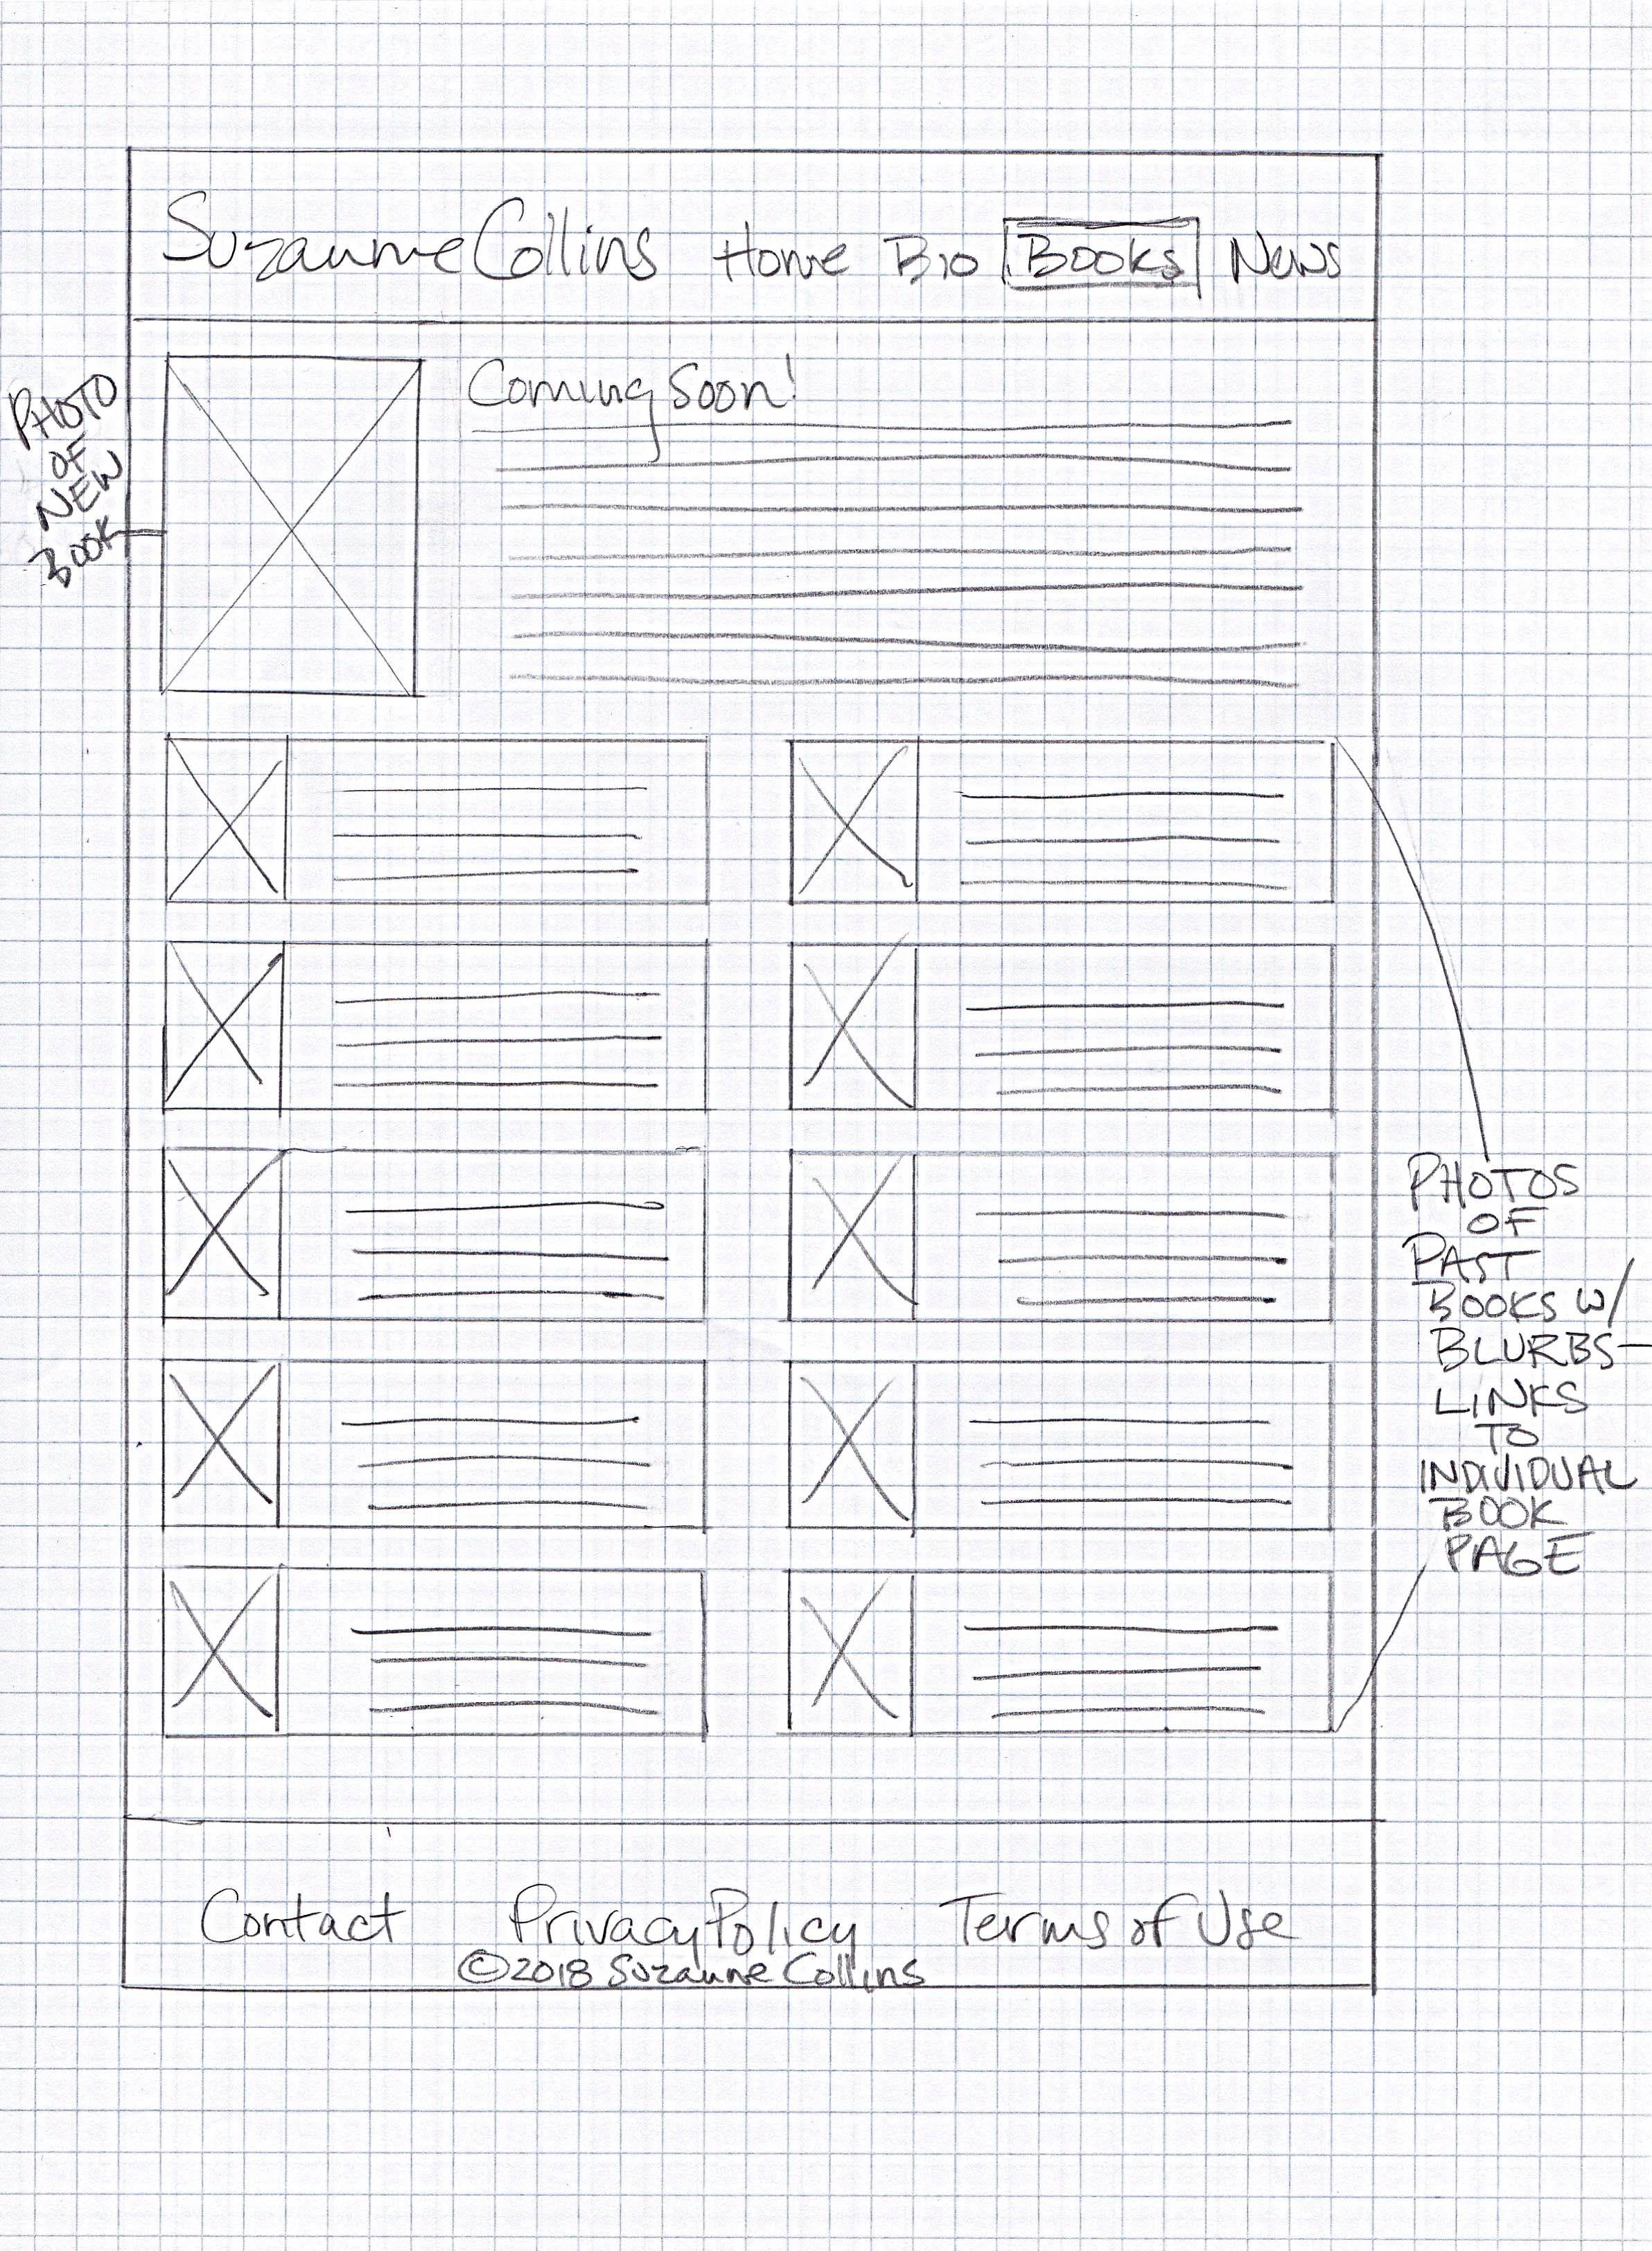 Suzanne Collins Home Bio Books News
PHOTO
OF
NEW
BOOK
Coming Soon!
PHOTOS
OF
PAST
BOOKS W/
BLURBS-
LINKS
TO
INDIVIDUAL
BOOK
PAGE
Contact Privacy Policy Terms of Use
©2018 Suzanne Collins